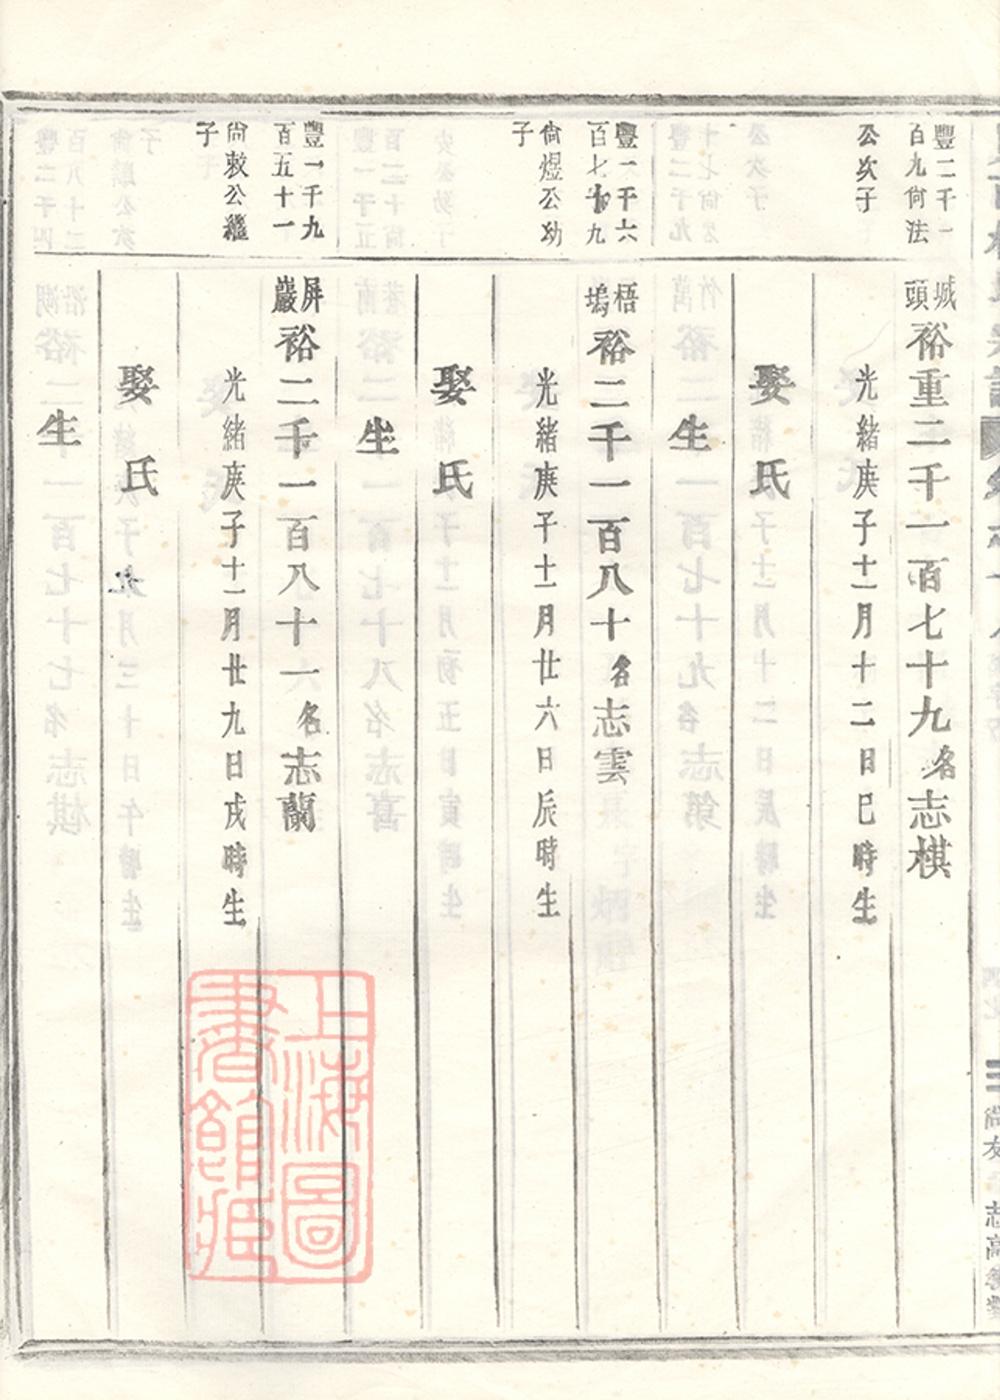 豐二千一
百九尙法
公次子
城
頭
裕重二千一百七十九名志棋
光緒庚子十二月十二日巳時生
娶氏
生
豐一千六
百七十九
尙煜公幼
子
梧
塢
裕二千一百八十名志雲
光緒庚子十二月廿六日辰時生
娶氏
生
豐一千九
百五十一
尙敕公繼
子
屏
巖
裕二千一百八十一名志蘭
光緒庚子十二月廿九日戌時生
娶氏
生
上海圖
書館藏